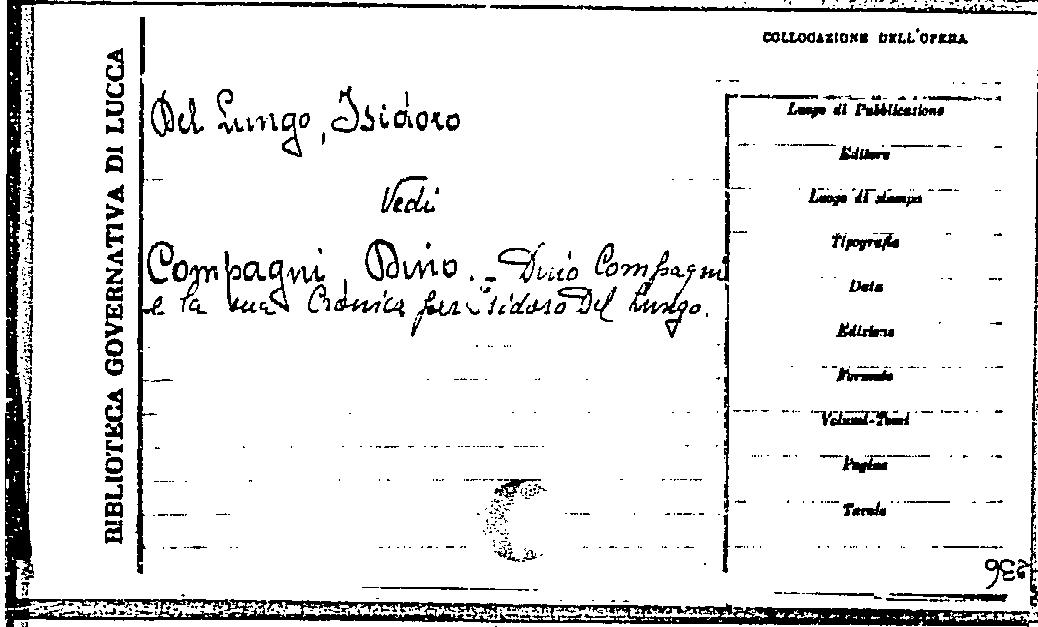 BIBLIOTECA GOVERNATIVA DI LUCCA
COLLOCAZIONE DELL'OPERA
Del Lungo, Isidoro
Vedi
Compagni, Dino. - Dino Compagni
e la sua Cronica per Isidoro Del Lungo.
Luogo di Pubblicazione
Editore
Luogo di stampa
Tipografia
Data
Edizione
Formato
Volumi-Tomi
Pagine
Tavole